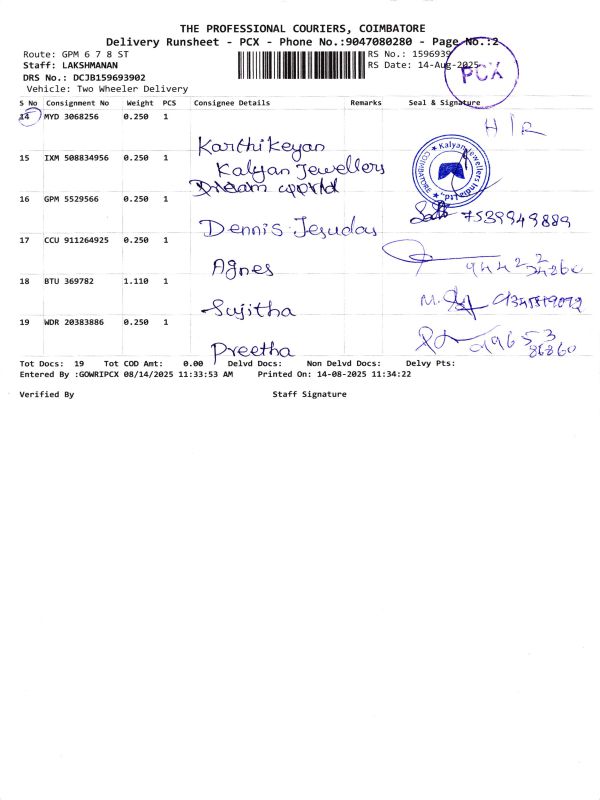 THE PROFESSIONAL COURIERS, COIMBATORE
Delivery Runsheet - PCX - Phone No.:9047080280 - Page No.:2
Route: GPM 6 7 8 ST
RS No.: 1596939
Staff: LAKSHMANAN
RS Date: 14-Aug-2025
PCX
DRS No.: DCJB159693902
Vehicle: Two Wheeler Delivery
S No Consignment No Weight PCS Consignee Details Remarks Seal & Signature
14 MYD 3068256 0.250 1 Karthikeyan H/R
15 IXM 508834956 0.250 1 Kalyan Jewellers
Dream world
Kalyan Jewellers India Ltd. COIMBATORE
16 GPM 5529566 0.250 1 Dennis Jesudas 7539949889
17 CCU 911264925 0.250 1 Agnes
18 BTU 369782 1.110 1 Sujitha
19 WDR 20383886 0.250 1 Preetha
Tot Docs: 19 Tot COD Amt: 0.00 Delvd Docs: Non Delvd Docs: Delvy Pts:
Entered By :GOWRIPCX 08/14/2025 11:33:53 AM Printed On: 14-08-2025 11:34:22
Verified By Staff Signature